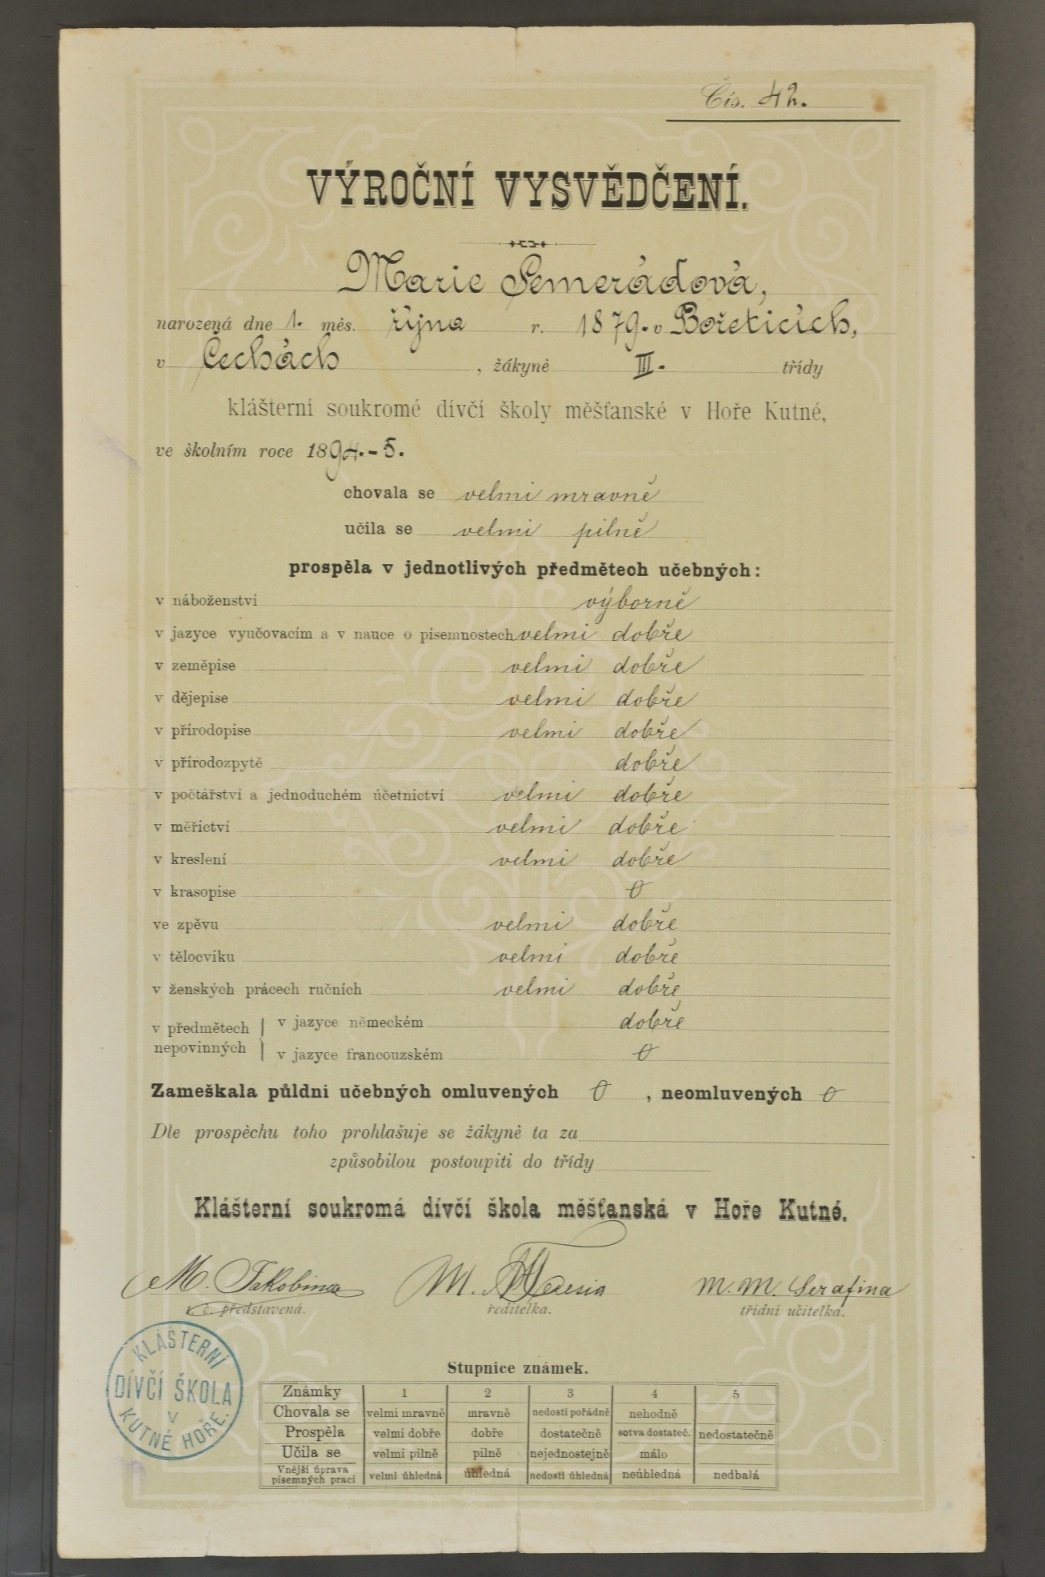 Čís. 42.
VÝROČNÍ VYSVĚDČENÍ.
Marie Semerádová,
narozená dne 1. měs. října r. 1879. v Bořeticích,
v Čechách, žákyně III. třídy
klášterní soukromé dívčí školy měšťanské v Hoře Kutné,
ve školním roce 1894.-5.
chovala se velmi mravně
učila se velmi pilně
prospěla v jednotlivých předmětech učebných:
v náboženství výborně
v jazyce vyučovacím a v nauce o písemnostech velmi dobře
v zeměpise velmi dobře
v dějepise velmi dobře
v přírodopise velmi dobře
v přírodozpytě dobře
v počtářství a jednoduchém účetnictví velmi dobře
v měřictví velmi dobře
v kreslení velmi dobře
v krasopise 0
ve zpěvu velmi dobře
v tělocviku velmi dobře
v ženských prácech ručních velmi dobře
v předmětech nepovinných v jazyce německém dobře
v jazyce francouzském 0
Zameškala půldní učebných omluvených 0, neomluvených 0
Dle prospěchu toho prohlašuje se žákyně ta za
způsobilou postoupiti do třídy
Klášterní soukromá dívčí škola měšťanská v Hoře Kutné.
M. Jakobina M. Teresia M. M. Serafina
v. č. představená. ředitelka. třídní učitelka.
KLÁŠTERNÍ
DÍVČÍ ŠKOLA
V
KUTNÉ HOŘE.
Stupnice známek.
Známky 1 2 3 4 5
Chovala se velmi mravně mravně nedosti pořádně nehodně
Prospěla velmi dobře dobře dostatečně sotva dostateč. nedostatečně
Učila se velmi pilně pilně nejednostejně málo
Vnější úprava
písemných prací velmi úhledná úhledná nedosti úhledná neúhledná nedbalá